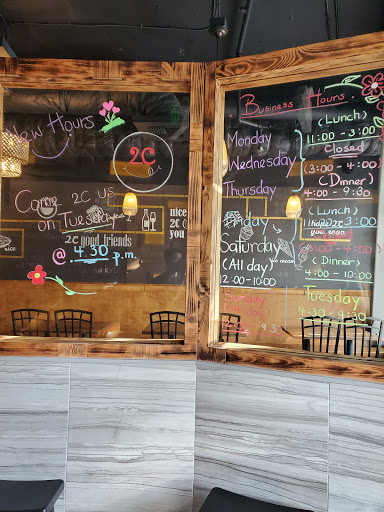 New Hours
2C
Come 2C us
on Tuesday
nice
2C
you
2C good friends
@ 4:30 p.m.
Business Hours
Monday
Wednesday
Thursday
(Lunch)
11:00 - 3:00
Closed
(3:00 - 4:00
(Dinner)
4:00 - 9:30
Friday
(Lunch)
11:00 - 3:00
hope 2C
you soon
4:00
(Dinner)
4:00 - 10:00
Saturday
(All day)
12:00 - 10:00
Sunday
9:30
Tuesday
4:30 - 9:30